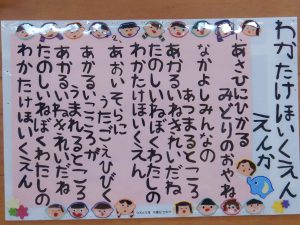 わかたけほいくえん
えんか
あさひにひかる
みどりのおやね
なかよしみんなの
あつまるところ
あかるいねきれいだね
たのしいねぼくわたしの
わかたけほいくえん
あおいそらに
うたごえひびく
あかるいこころが
うまれるところ
あかるいねきれいだね
たのしいねぼくわたしの
わかたけほいくえん